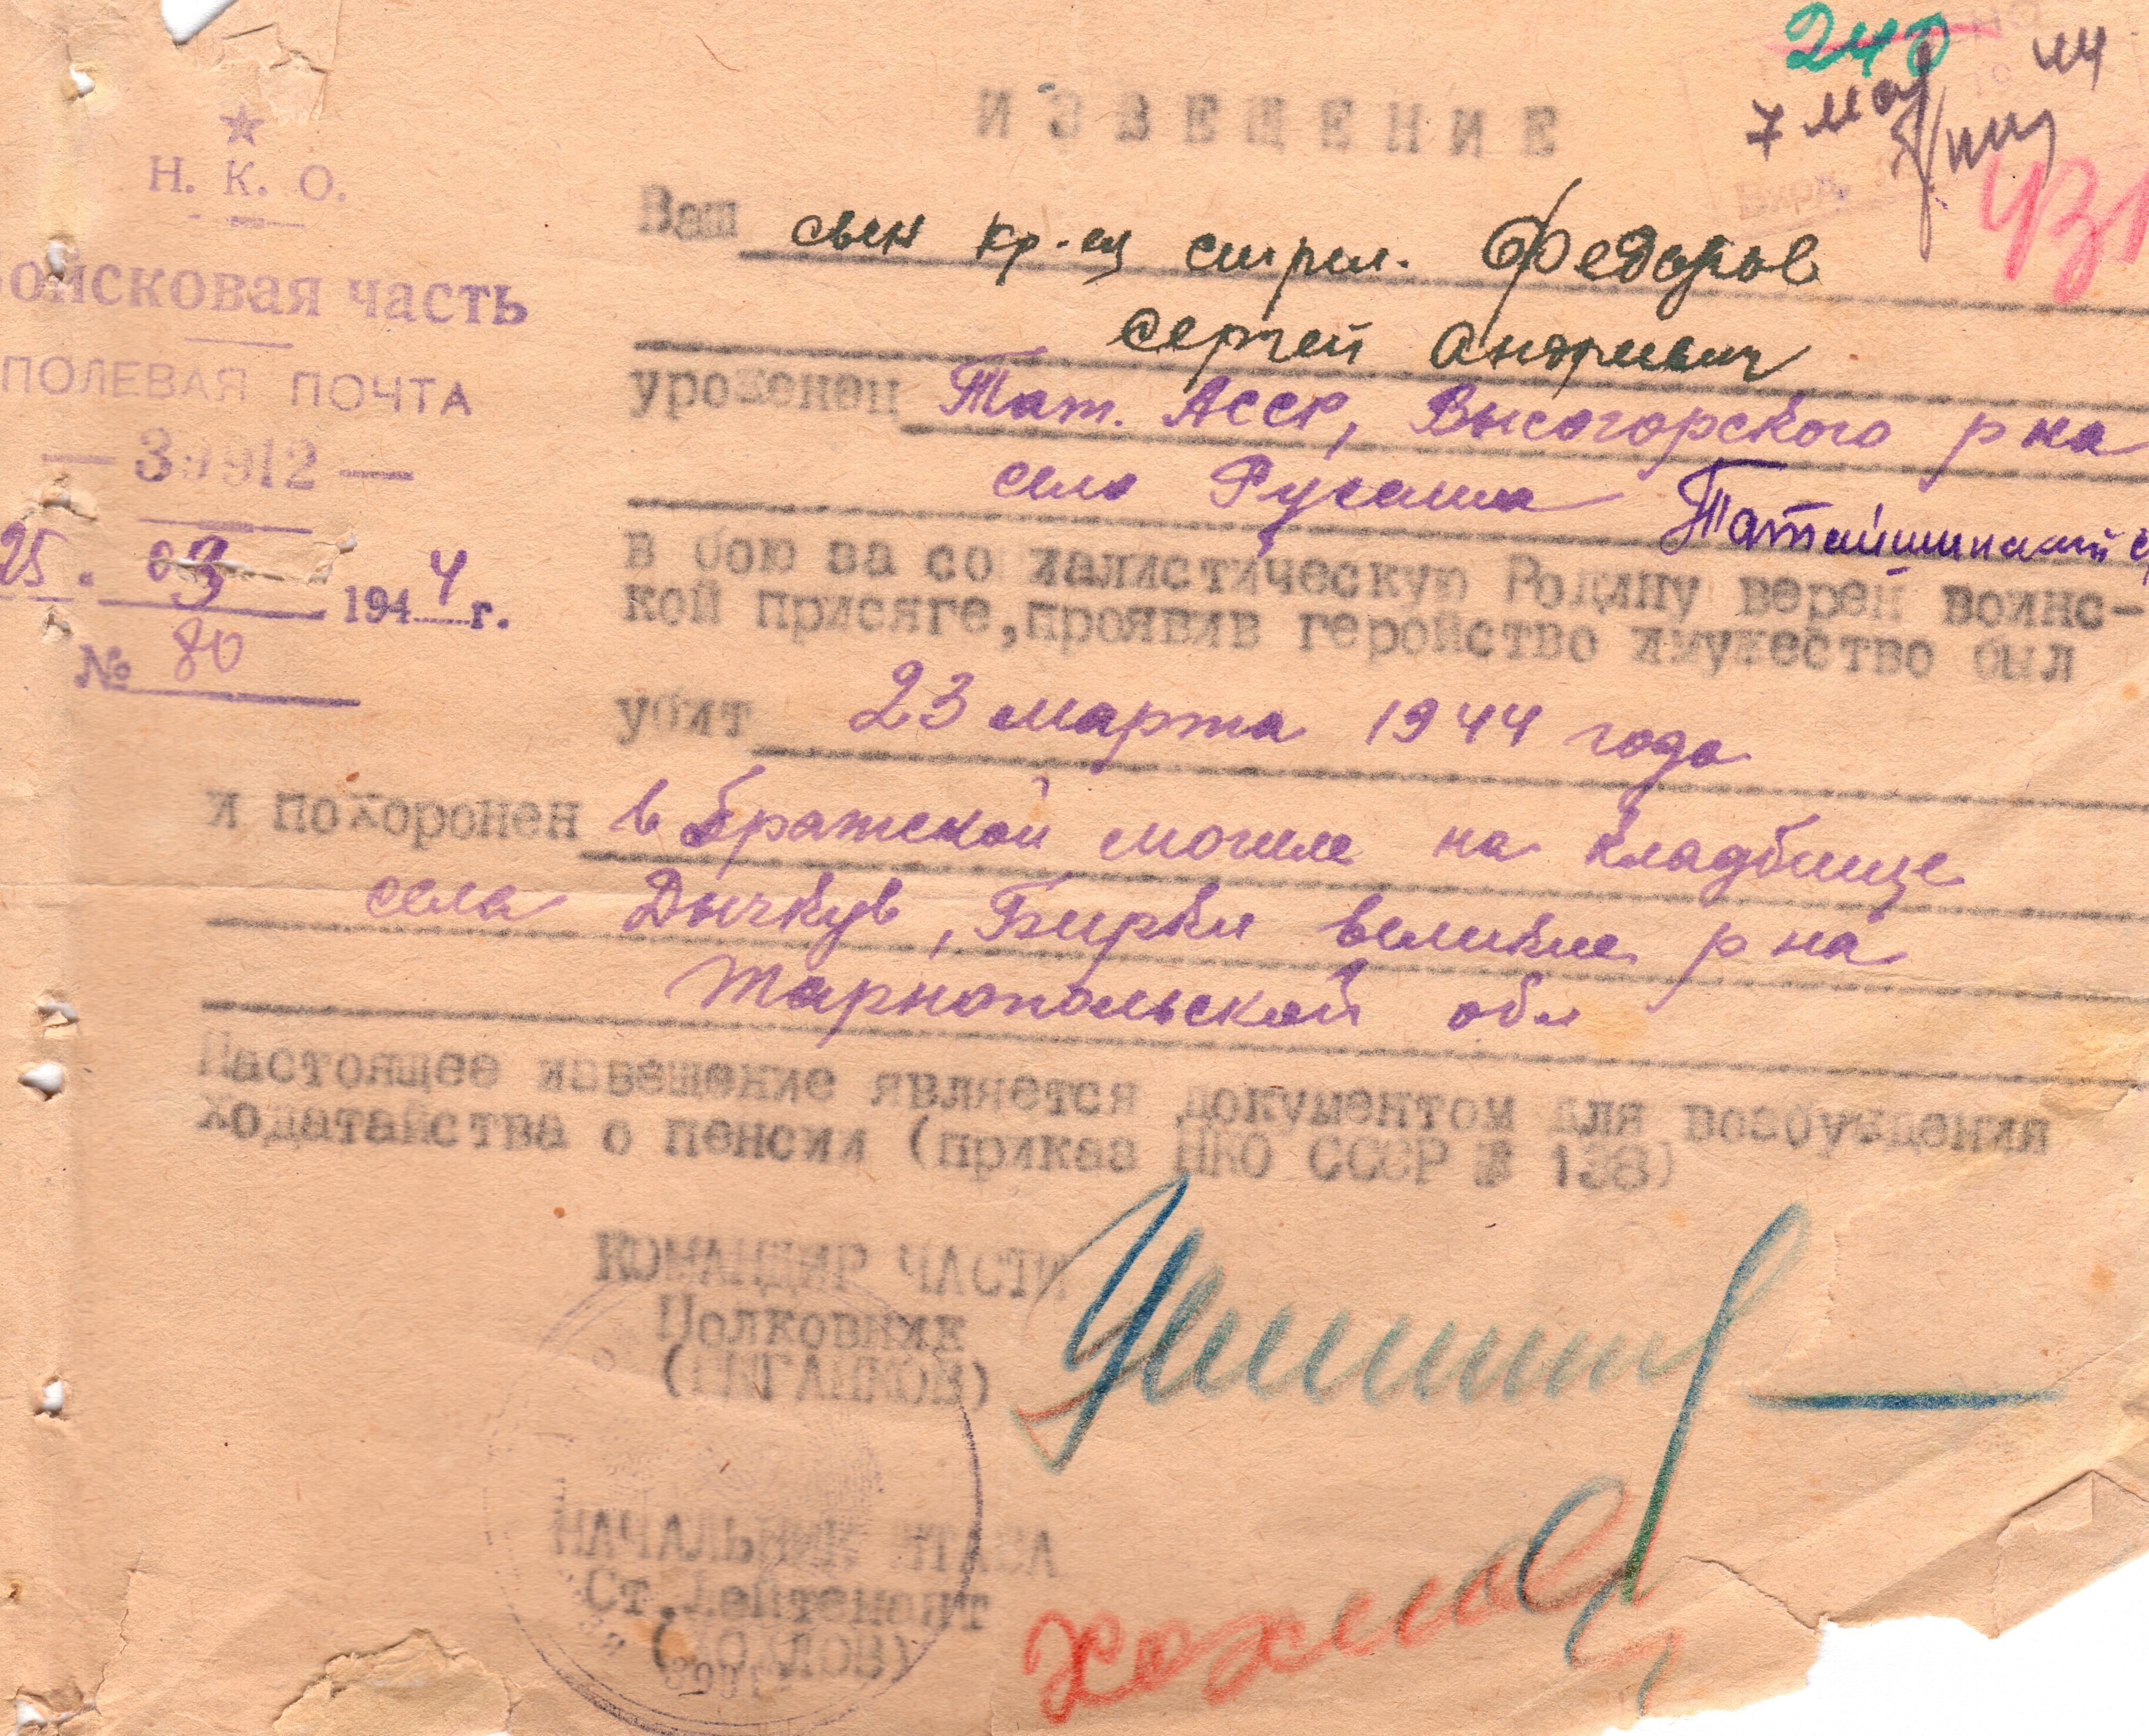 240
7 мая 44
431
ИЗВЕЩЕНИЕ
Н. К. О.
ойсковая часть
ПОЛЕВАЯ ПОЧТА
— 39912 —
25. 03 1944 г.
№ 80
Ваш сын кр-ец стрел. Федоров
Сергей Андреевич
уроженец Тат. АССР, Высогорского р на
село Русаша Таташинский с
в бою за со иалистическую Родину верен воинс-
кой присяге, проявив геройство имужество был
убит 23 марта 1944 года
и похоронен в братской могиле на кладбище
села Дычкув, Бирки великие р на
Тарнопольской обл
Настоящее извещение является документом для возбуждения
ходатайства о пенсии (приказ НКО СССР № 138)
КОМАНДИР ЧАСТИ
Полковник
НАЧАЛЬНИК ШТАБА
Ст. Лейтенант